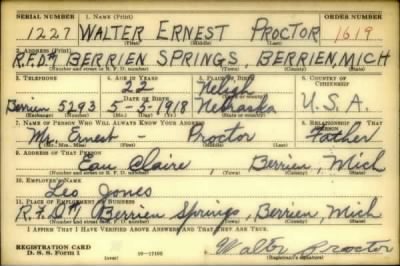 SERIAL NUMBER 1. NAME (Print) ORDER NUMBER
1227 WALTER ERNEST PROCTOR 1619
(First) (Middle) (Last)
2. ADDRESS (Print)
R.F.D.#1 BERRIEN SPRINGS, BERRIEN, MICH
(Number and street or R. F. D. number) (Town) (County) (State)
3. TELEPHONE 4. AGE IN YEARS 5. PLACE OF BIRTH 6. COUNTRY OF CITIZENSHIP
22 Neligh
DATE OF BIRTH
Berrien 5293 5-5-1918 Nebraska U.S.A.
7. NAME OF PERSON WHO WILL ALWAYS KNOW YOUR ADDRESS 8. RELATIONSHIP OF THAT PERSON
Mr. Ernest - Proctor Father
(Mr., Mrs., Miss) (First) (Middle) (Last)
9. ADDRESS OF THAT PERSON
Eau Claire, Berrien, Mich
(Number and street or R. F. D. number) (Town) (County) (State)
10. EMPLOYER'S NAME
Leo Jones
11. PLACE OF EMPLOYMENT OR BUSINESS
R.F.D.#1 Berrien Springs, Berrien, Mich
(Number and street or R. F. D. number) (Town) (County) (State)
I AFFIRM THAT I HAVE VERIFIED ABOVE ANSWERS AND THAT THEY ARE TRUE.
REGISTRATION CARD
D. S. S. Form 1 Walter Proctor
(Registrant's signature)